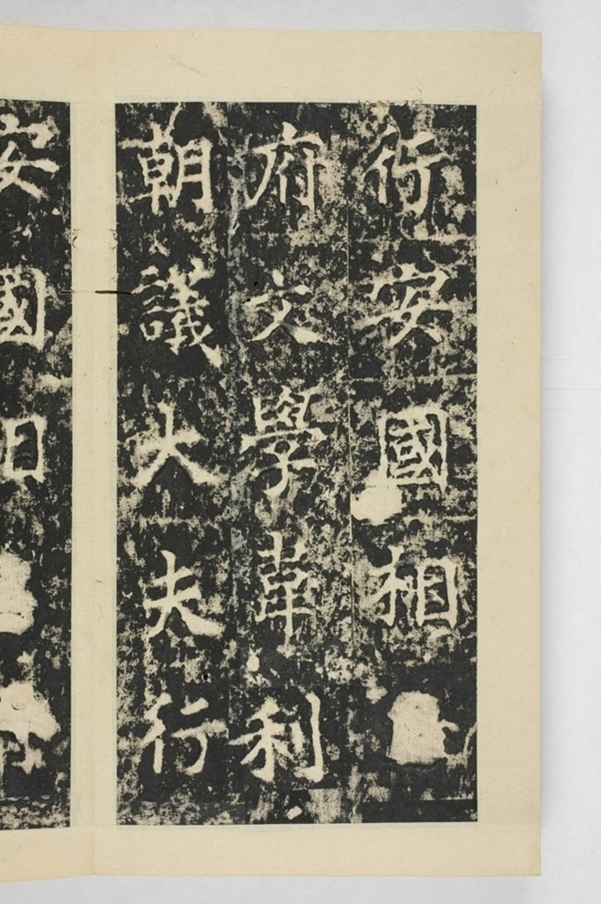 行安國相
府文學韋利
朝議大夫行
安國相